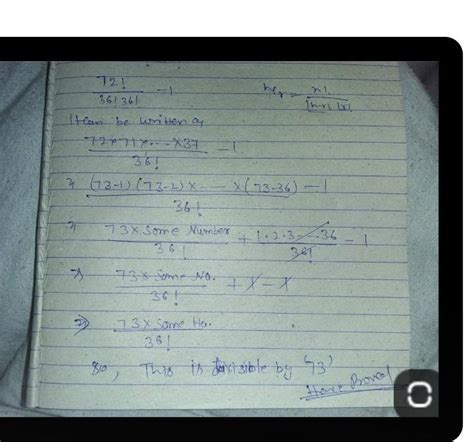 72! / 36! 36! - 1
nCr = n! / |n-r |r
It can be written as
72×71×---×37 / 36! - 1
⇒ (73-1)(73-2)×---×(73-36) / 36! - 1
⇒ 73×Some Number / 36! + 1·2·3---36 / 36! - 1
⇒ 73×Some No. / 36! + 1 - 1
⇒ 73×Some No. / 36!
So, This is divisible by '73'
Hence Proved